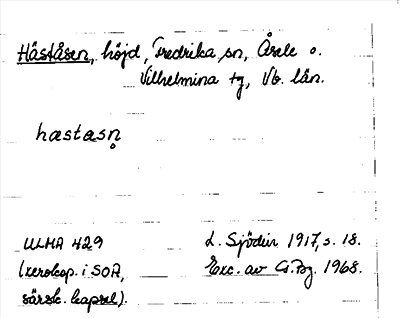 Håståsen, höjd, Fredrika sn, Åsele o.
Vilhelmina tg, Vb. län.
hastasn̥
ULMA 429
(xerokop. i SOA,
särsk. kapsel).
L. Sjödin 1917, s. 18.
Exc. av G.Bg. 1968.